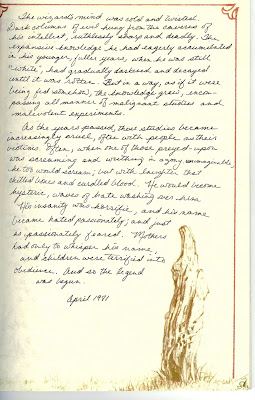 The wizard's mind was cold and twisted.
Dark columns of evil hung from the caverns of
his intellect, ruthlessly sharp and deadly. The
expansive knowledge he had eagerly accumulated
in his younger, fuller years, when he was still
"white", had gradually darkened and decayed
until it was rotten. But in a way, as if it were
being fed somehow, the knowledge grew, encom-
passing all manner of malignant studies and
malevolent experiments.
As the years passed, these studies became
increasingly cruel, often with people as their
victims. Often, when one of those preyed-upon
was screaming and writhing in agony unimaginable
he too would scream; but with laughter that
chilled bones and curdled blood. He would become
hysteric, waves of hate washing over him.
His insanity was horrific, and his name
became hated passionately; and just
as passionately feared. Mothers
had only to whisper his name,
and children were terrified into
obedience. And so the legend
was begun.
April 1981